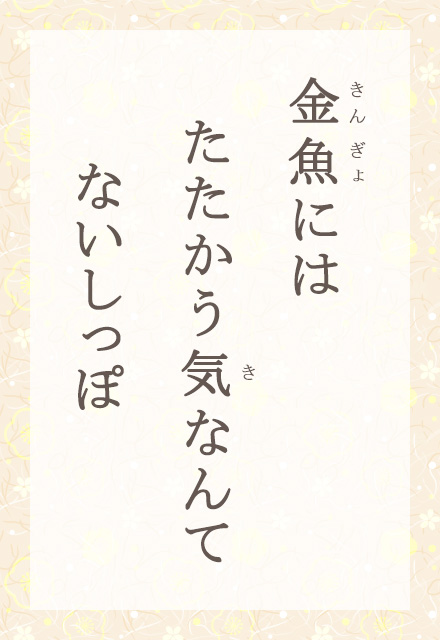 金魚には
たたかう気なんて
ないしっぽ
きんぎょ
き